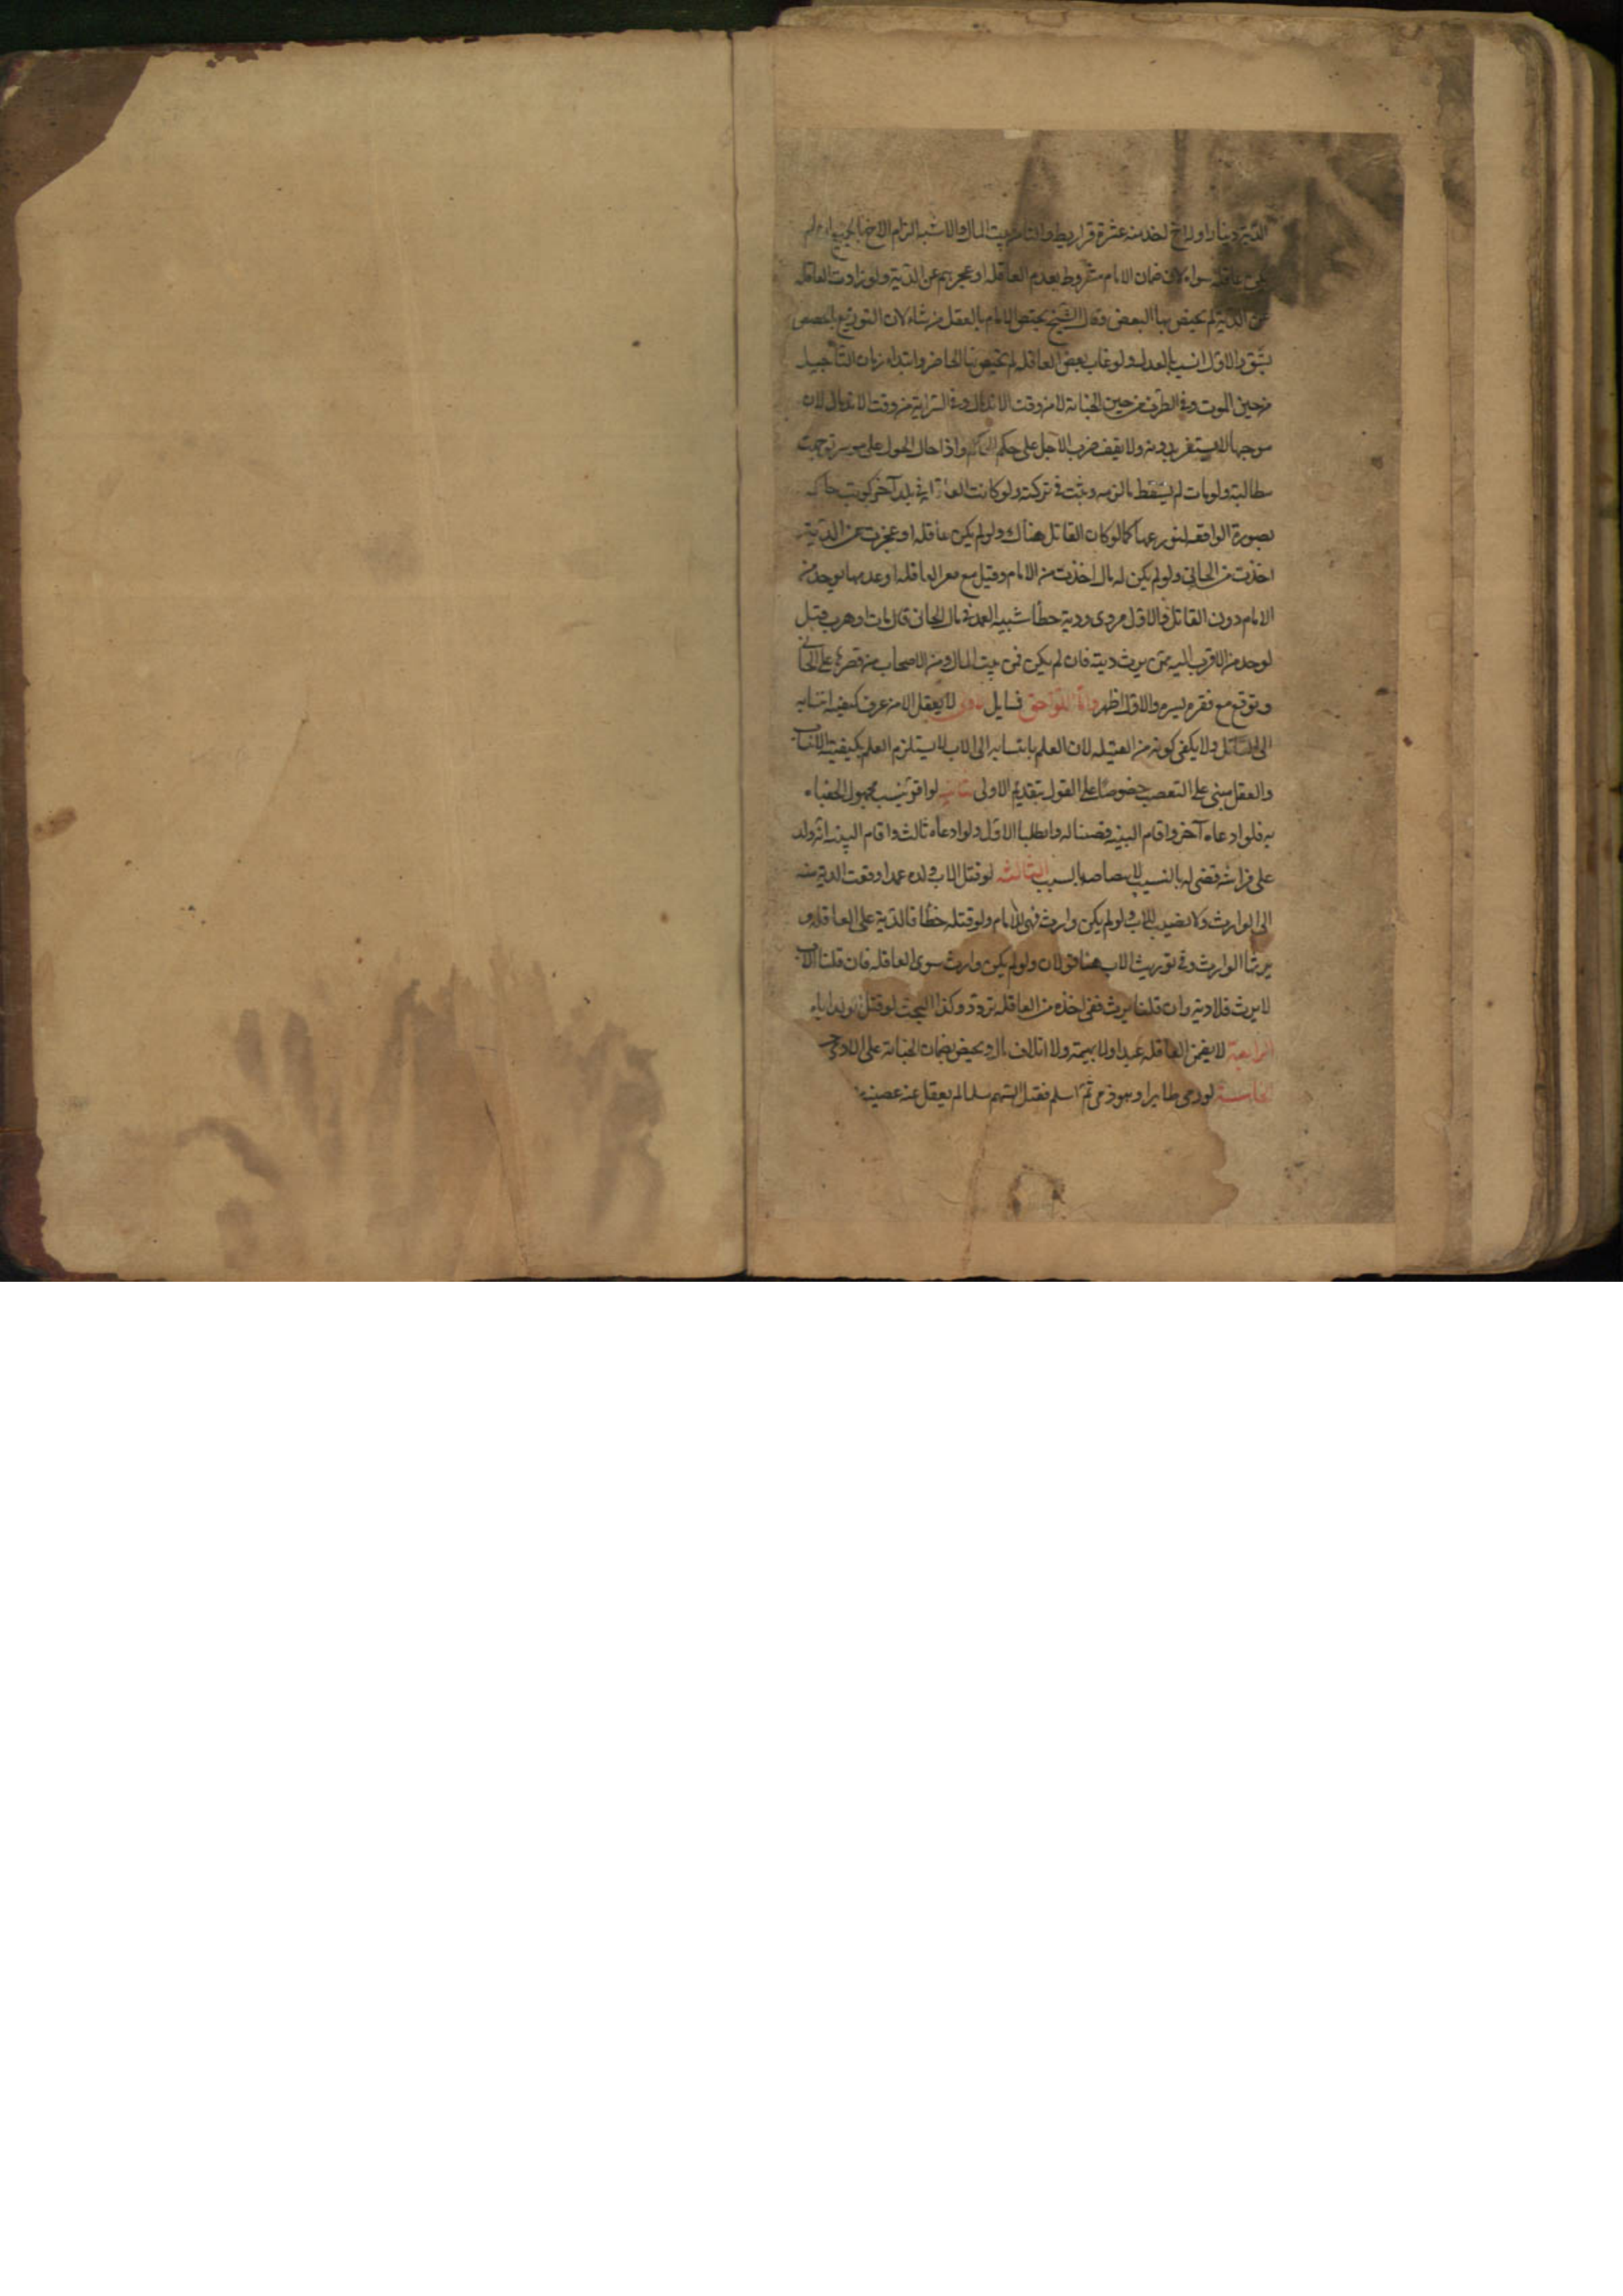 الدية دينارا وله اخ اخذ منه عشرة قراريط والباقي من بيت المال والاشبه الزام الاخ بالجميع ان لم
يكن عاقلة سواه لان ضمان الامام مشروط بعدم العاقلة او عجزهم عن الدية ولو زادت العاقلة
عن الدية لم يختص بها البعض وقال الشيخ يختص الامام بالعقل من شاء لان التوزيع بالحصص
يشق والاول انسب بالعدل ولو غاب بعض العاقلة لم يختص بها الحاضر وابتداء زمان التأجيل
من حين الموت وفي الطرف من حين الجناية لا من وقت الاندمال وفي السراية من وقت الاندمال لان
موجبها لا يستقر بدونه ولا يقف ضرب الاجل على حكم الحاكم واذا حال الحول على موسر توجهت
مطالبته ولو مات لم يسقط ما لزمه وثبت في تركته ولو كانت العاقلة في بلد آخر كوتب حاكمه
بصورة الواقعة ليوزعها كما لو كان القاتل هناك ولو لم يكن عاقلة او عجزت عن الدية
اخذت من الجاني ولو لم يكن له مال اخذت من الامام وقيل مع فقر العاقلة او عدمها يوخذ من
الامام دون القاتل والاول مروى ودية خطأ شبيه العمد في مال الجاني فان مات او هرب قيل
يوخذ من الاقرب اليه ممن يرث ديته فان لم يكن فمن بيت المال ومن الاصحاب من قصرها على الجاني
وتوقع مع فقره يسره والاول اظهر واما اللواحق فمسايل الاولى لا يعقل الا من عرف كيفية انتسابه
الى القاتل ولا يكفي كونه من القبيلة لان العلم بانتسابه الى الاب لا يستلزم العلم بكيفية الانتساب
والعقل مبنى على التعصيب خصوصا على القول بتقديم الاولى الثانية لو اقر بنسب مجهول الحقناه
به فلو ادعاه آخر واقام البينة قضينا له وابطلنا الاول ولو ادعاه ثالث واقام البينة انه ولد
على فراشه قضى له بالنسب لاختصاصه بالسبب الثالثة لو قتل الاب ولده عمدا دفعت الدية منه
الى الوارث ولا نصيب للاب ولو لم يكن وارث فهي للامام ولو قتله خطأ فالدية على العاقلة و
يرثها الوارث وفي توريث الاب هنا قولان ولو لم يكن وارث سوى العاقلة فان قلنا الاب
لا يرث فلا دية وان قلنا يرث ففي اخذه من العاقلة تردد وكذا البحث لو قتل الولد اباه
الرابعة لا يضمن العاقلة عبدا ولا بهيمة ولا اتلاف مال ويختص بضمان الجناية على الآدمي حسب
الخامسة لو رمى طايرا وهو ذمي ثم اسلم فقتل السهم مسلما لم يعقل عنه عصبته من